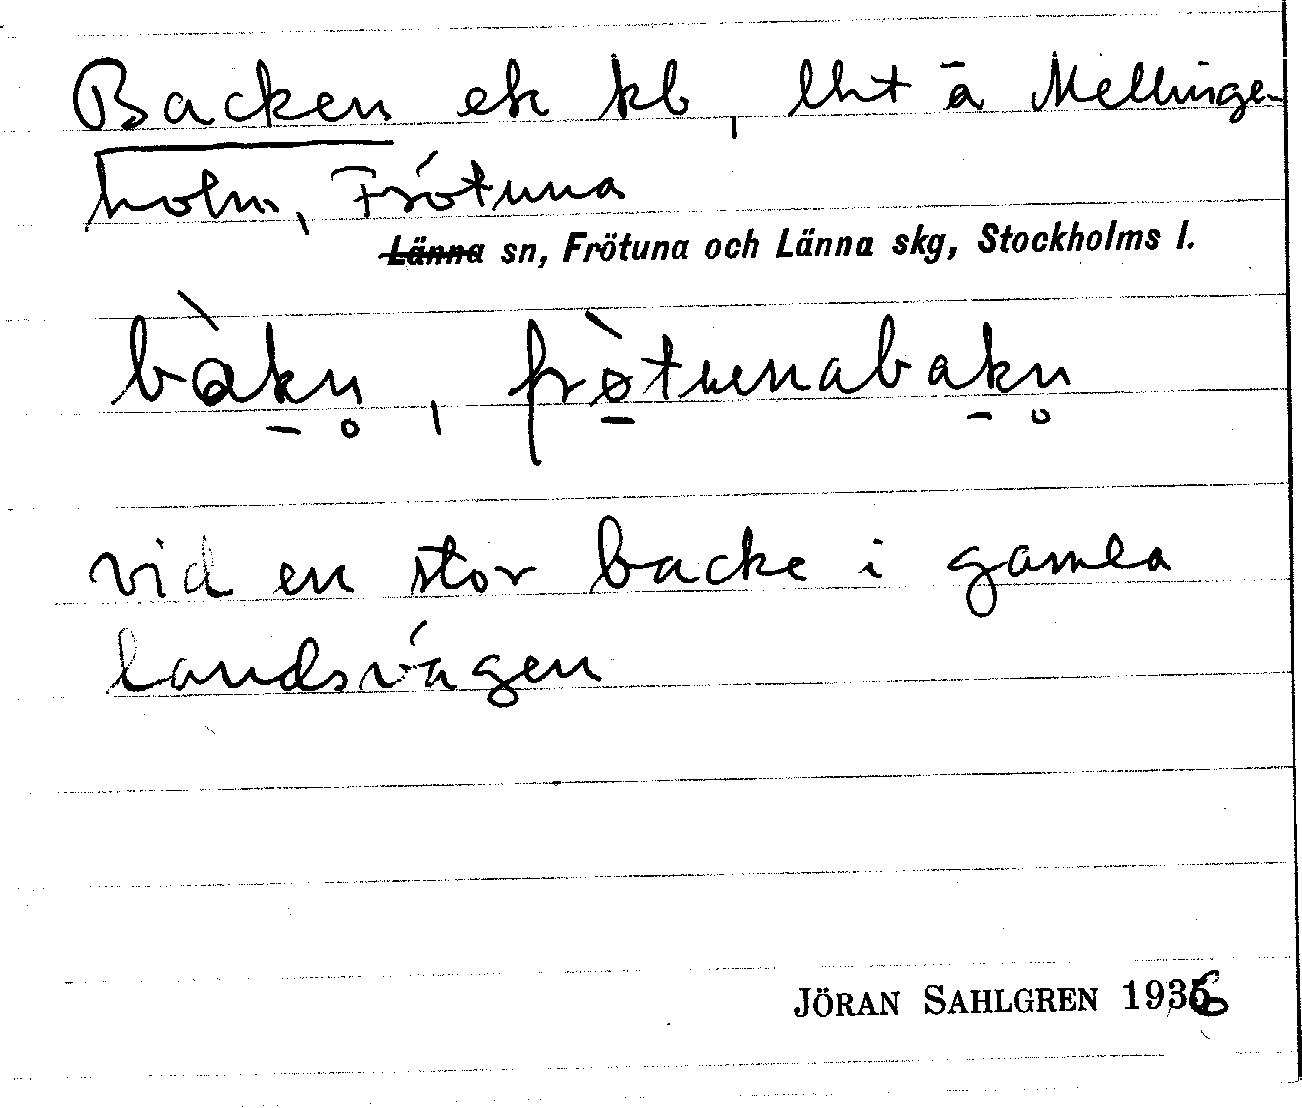 Backen ek kb, lht å Mellinge-
holm, Frötuna
Länna sn, Frötuna och Länna skg, Stockholms l.
bàkn̥, frø̀tunabakn̥
vid en stor backe i gamla
landsvägen
JÖRAN SAHLGREN 1936